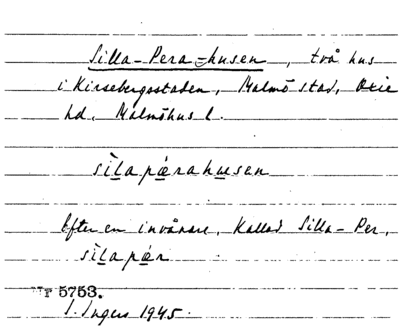 Silla-Pera-husen, två hus
i Kirsebergsstaden, Malmö stad, Oxie
hd, Malmöhus l.
sìlapærahusen
Efter en invånare, kallad Silla-Per,
sìlapær
Nr 5753.
I. Ingers 1945.